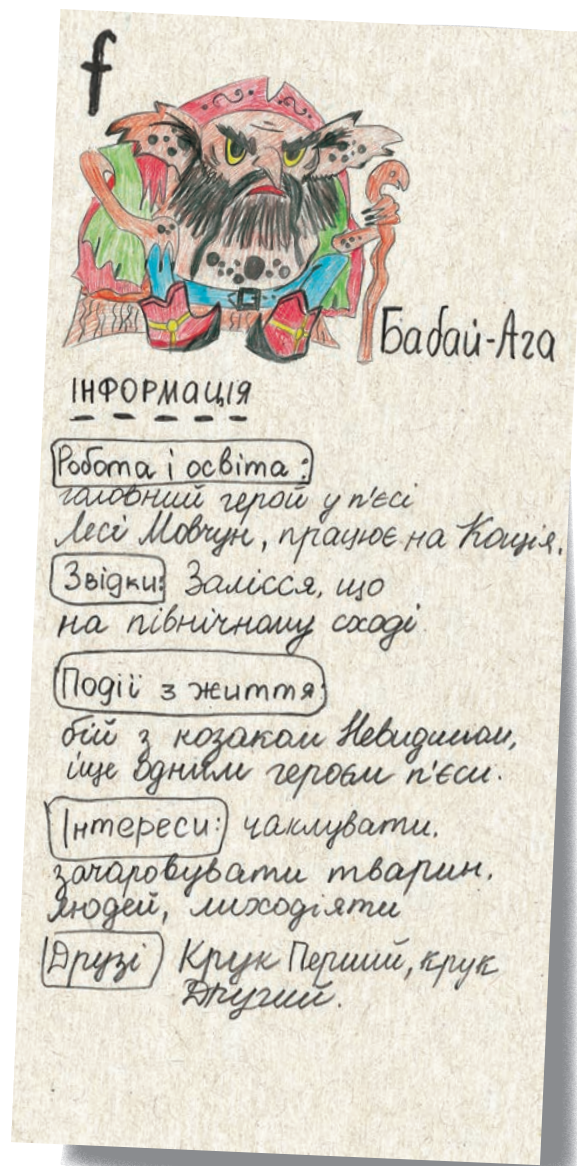 f
Бабай-Ага
ІНФОРМАЦІЯ
Робота і освіта:
головний герой у п'єсі
Лесі Мовчун, працює на Кощія.
Звідки: Залісся, що
на північному сході
Події з життя:
бій з козаком Невидимом,
іще одним героєм п'єси.
Інтереси: чаклувати,
зачаровувати тварин,
людей, лиходіяти
Друзі Крук Перший, крук
Другий.